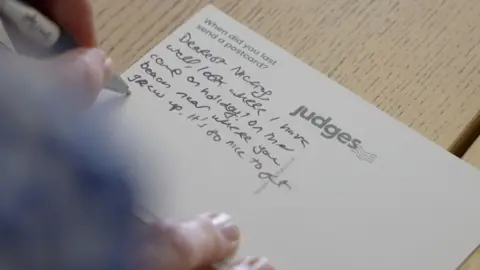 When did you last
send a postcard?
Dearest
Well, look where I have
come on holiday! on the
beach near where you
grew up. It's so nice to get
judges